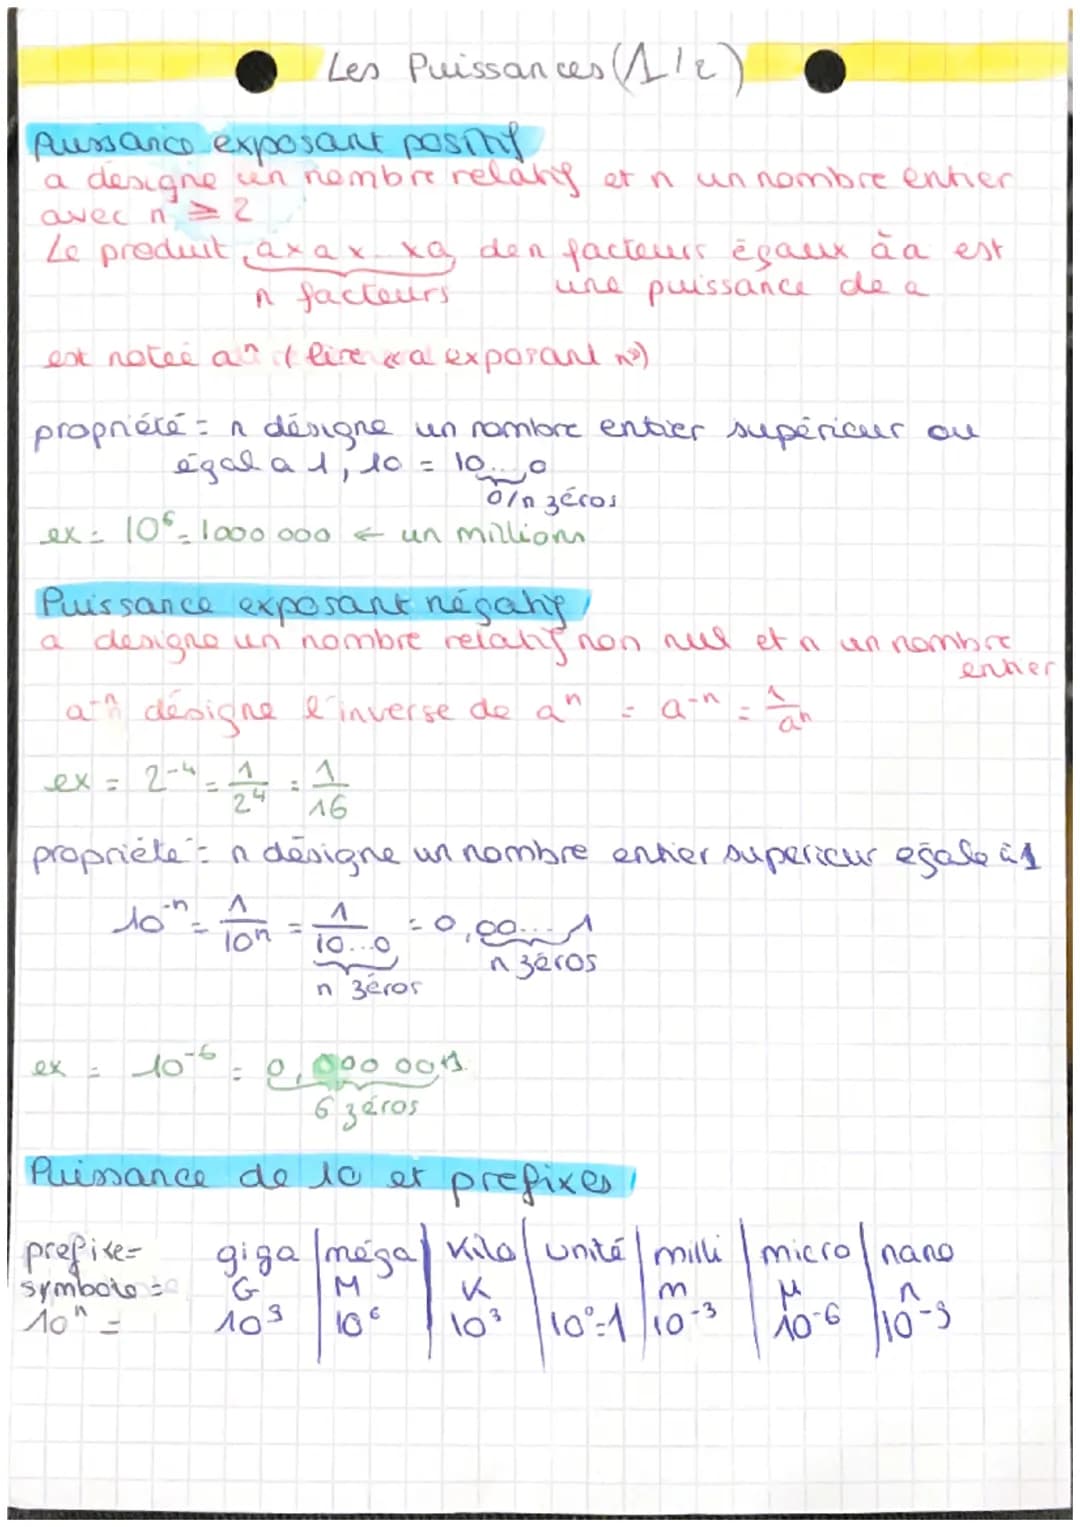 Les Puissances (1/2)
Puissance exposant positif
a designe un nombre relatif et n un nombre entier
avec n ⩾ 2
Le produit a×a×...×a de n facteurs égaux à a est
n facteurs une puissance de a
est notée aⁿ (lire « a exposant n »)
propriété = n désigne un nombre entier supérieur ou
égal a 1, 10 = 10...0
0/n zéros
ex = 10⁶ = 1000 000 ← un millions
Puissance exposant négatif
a designe un nombre relatif non nul et n un nombre
entier
a⁻ⁿ désigne l'inverse de aⁿ = a⁻ⁿ = 1/aⁿ
ex = 2⁻⁴ = 1/2⁴ = 1/16
propriéte = n désigne un nombre entier superieur égale à 1
10⁻ⁿ = 1/10ⁿ = 1/10...0 = 0,00...1
n zéros n zéros
ex = 10⁻⁶ = 0,000 001
6 zéros
Puissance de 10 et prefixes
prefixe = giga | méga | Kilo | unité | milli | micro | nano
symbole = G M K m μ n
10ⁿ = 10⁹ 10⁶ 10³ 10⁰=1 10⁻³ 10⁻⁶ 10⁻⁹